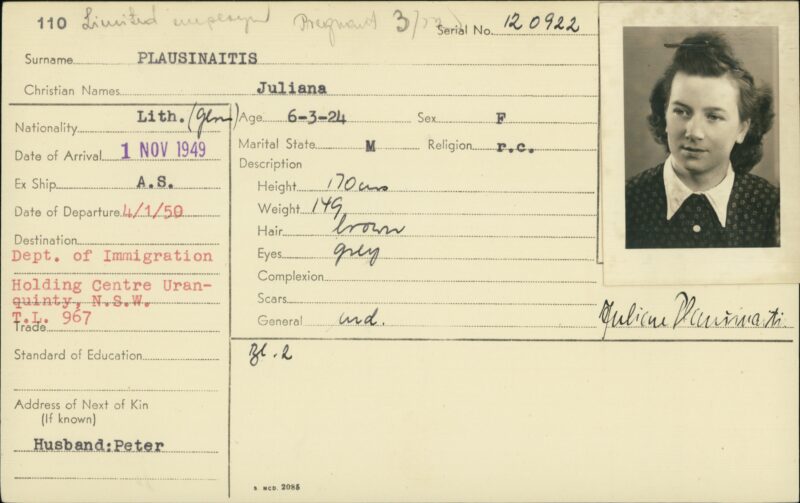 110 Limited employm Pregnant 3/
Serial No. 120922
Surname PLAUSINAITIS
Christian Names Juliana
Nationality Lith.
Age 6-3-24 Sex F
Date of Arrival 1 NOV 1949
Marital State M Religion r.c.
Description
Ex Ship A.S.
Height 170cms
Date of Departure 4/1/50
Weight 149
Hair brown
Destination
Eyes grey
Dept. of Immigration
Complexion
Holding Centre Uran-
quinty, N.S.W.
Scars
T.L. 967
Trade
General
Juliane Plausinaiti
Standard of Education
Bl. 2
Address of Next of Kin
(If known)
Husband:Peter
S. MCD. 2085